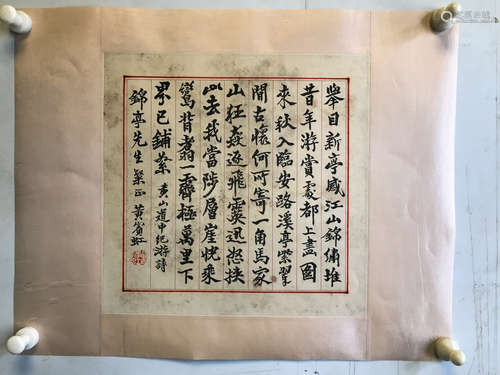 舉目新亭感江山錦繡堆
昔年游賞處都上畫圖
來秋入臨安路溪亭紫翠
間古懷何所寄一角馬家
山狂猋逐飛霙迅迅挾
此去我當陟層崖恍乘
鸞背翥一霽極萬里下
界已鋪絮 黃山道中紀游詩
錦亭先生粲正 黃賓虹